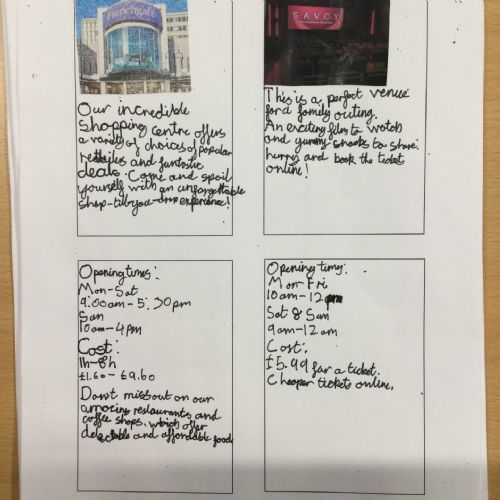 Frenchgate
Our incredible
shopping centre offers
a variety of choices of popular
retailes and fantastic
deals. Come and spoil
yourself with an unforgettable
shop-till-you-drop experience!
SAVOY
This is a perfect venue
for a family outing.
An exciting films to watch
and yummy snacks to share.
hurry and book the ticket
online!
Opening times:
Mon-Sat
9:00am-5:30pm
Sun
10am-4pm
Cost:
1h-8h
£1.60-£9.60
Don't miss out on our
amazing restaurants and
coffee shops, which offer
delectable and affordable food
Opening time:
Mon-Fri
10am-12pm
Sat & Sun
9am-12am
Cost:
£5.99 for a ticket.
Cheaper ticket online.